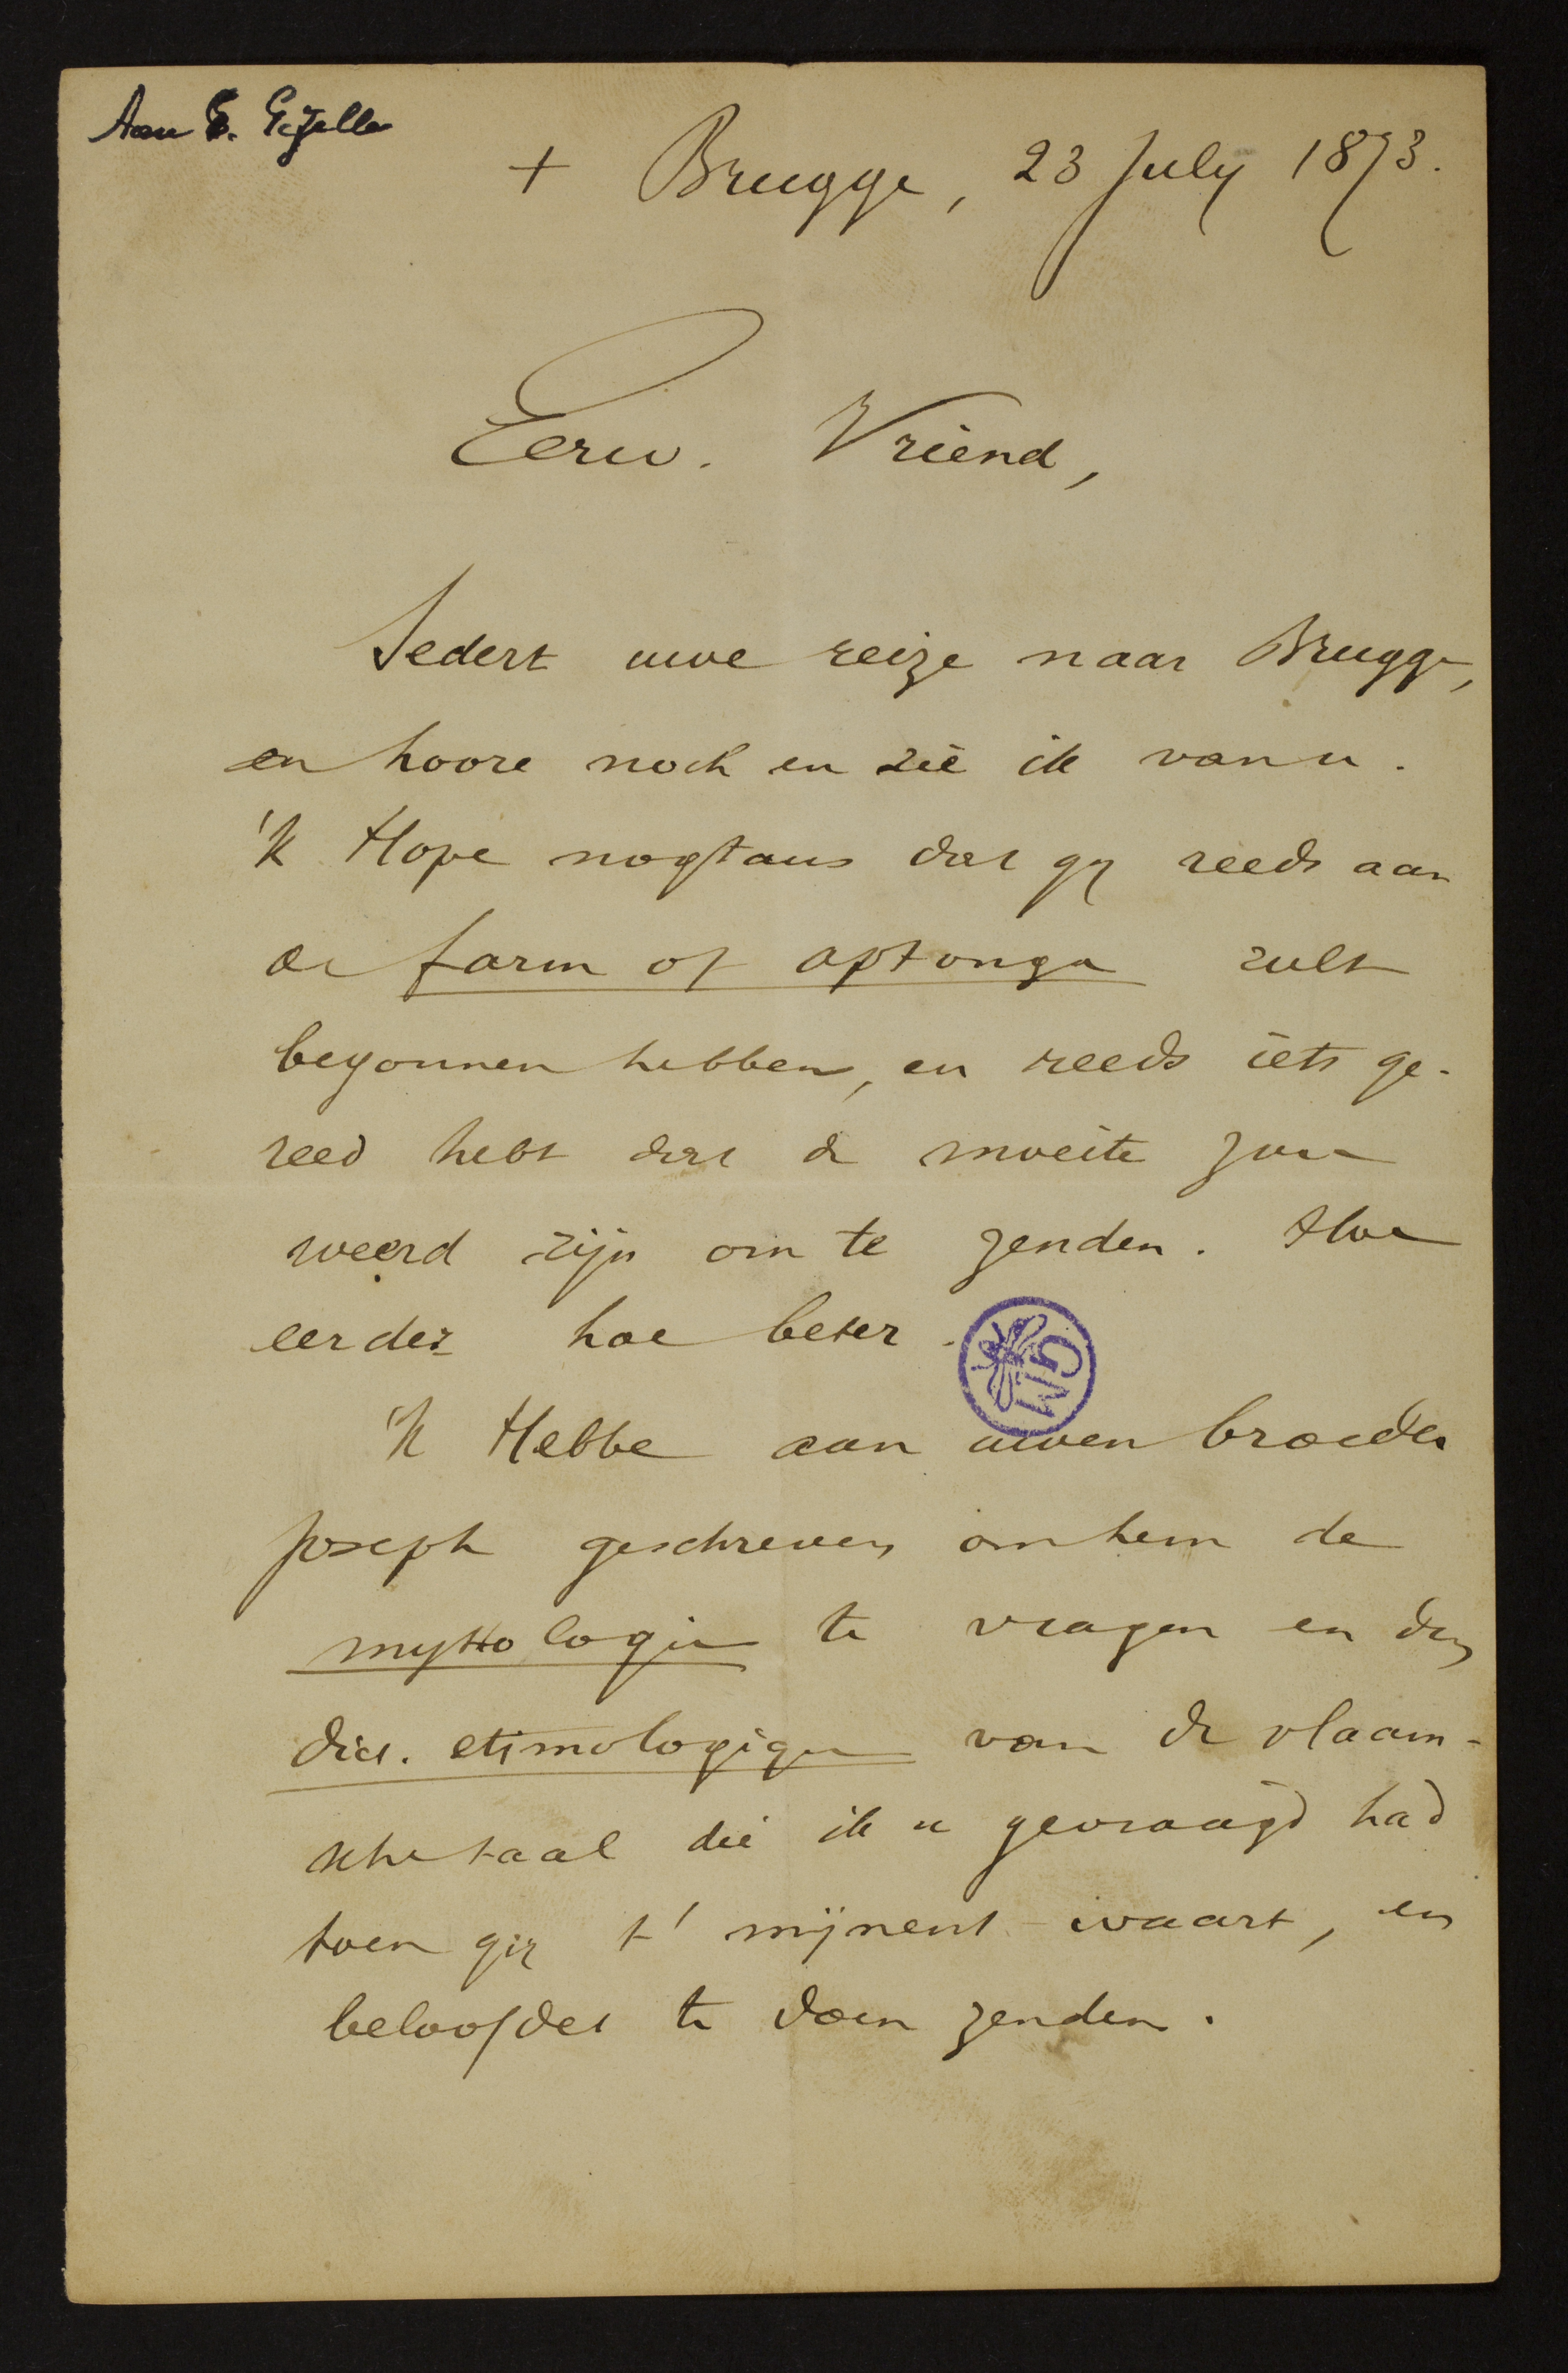 Aan G. Gezelle
+ Brugge, 23 July 1873.
Eerw. Vriend,
Sedert uwe reize naar Brugge,
en hoore noch en zie ik van u.
'k Hope nogtans dat gy reeds aan
de farm of aptonga zult
begonnen hebben, en reeds iets ge-
reed hebt dat de moeite zou
weerd zijn om te zenden. Hoe
eerder hoe beter.
'k Hebbe aan uwen broeder
Joseph geschreven om hem de
mythologie te vragen en den
dict. etimologique van de vlaam-
sche taal die ik u gevraagd had
toen gij t' mijnent waart, en
beloofdet te doen zenden.